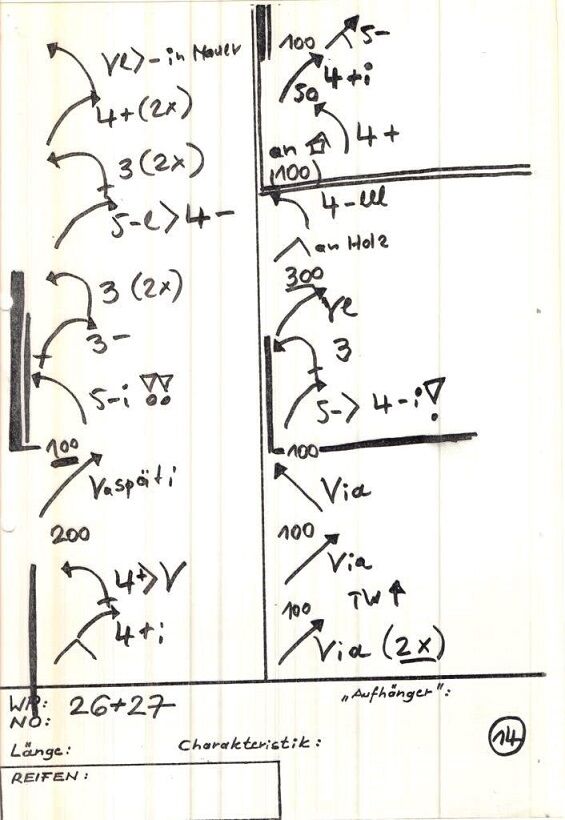 Ve > - in Mauer
4+ (2x)
3 (2x)
5-e > 4-
3 (2x)
3-
5-i !!
100
Vaspät i
200
4+ > V
4+i
100
5-
4+i
50
an
4+
(100)
4-lll
an Holz
300
Ve
3
5-> 4-i !
100
Via
100
Via
TW ↑
100
Via (2x)
WP: 26+27
NO:
"Aufhänger":
Länge:
Charakteristik:
14
REIFEN: